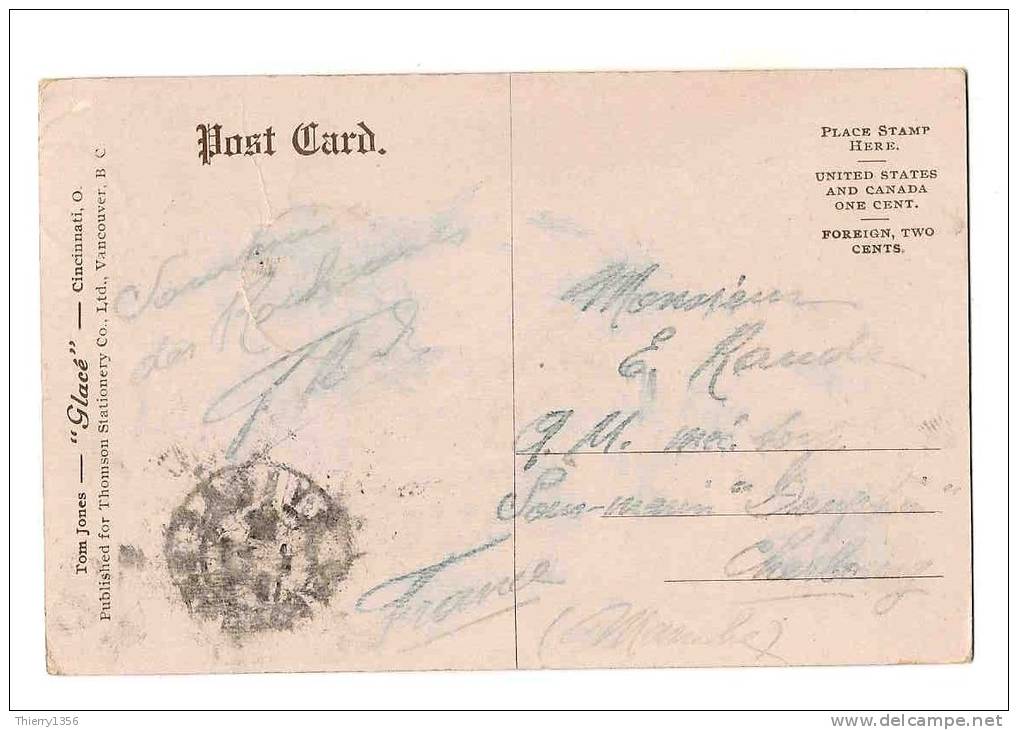 Post Card.
PLACE STAMP
HERE.
UNITED STATES
AND CANADA
ONE CENT.
FOREIGN, TWO
CENTS.
Tom Jones — "Glacé" — Cincinnati, O.
Published for Thomson Stationery Co., Ltd., Vancouver, B C
des
Monsieur
E.
q. M.
Sous-marin "
Cherbourg
(Manche)
France
Thierry1356
www.delcampe.net